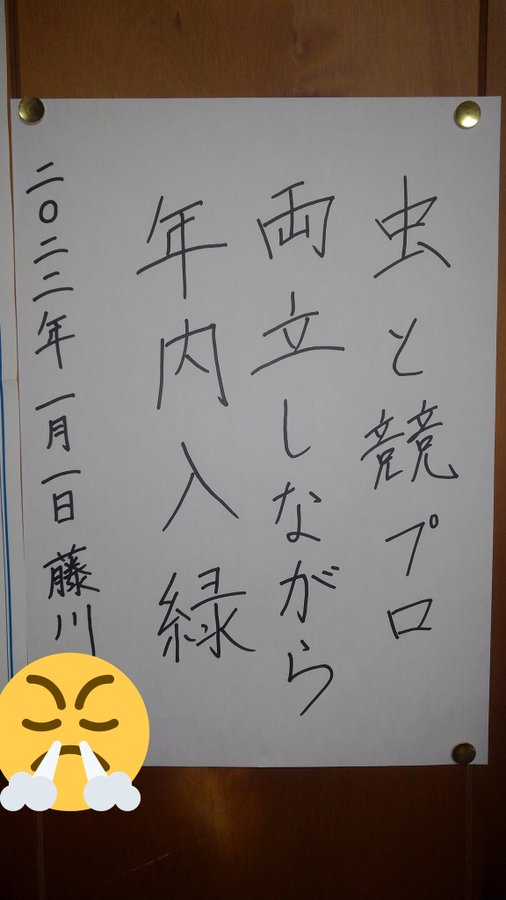 虫と競プロ
両立しながら
年内入緑
二〇二二年一月一日藤川